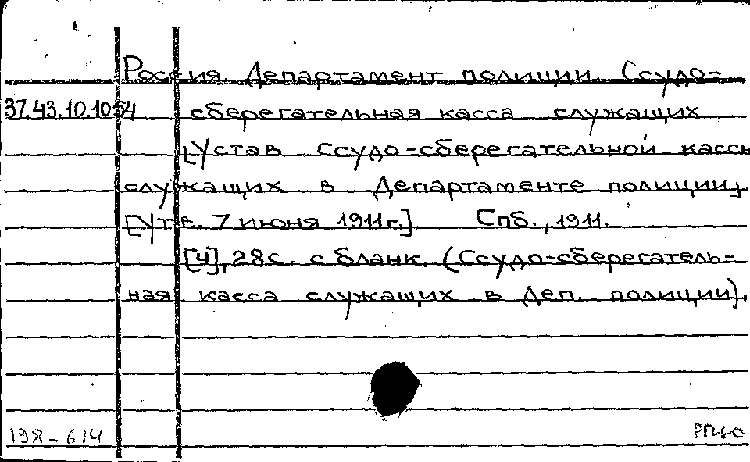 Россия. Департамент полиции. Ссудо-
37.43.10.1054 сберегательная касса служащих
[Устав Ссудо-сберегательной кассы
служащих в Департаменте полиции,
[утв. 7 июня 1911г.] Спб., 1911.
[4], 28с. с бланк. (Ссудо-сберегатель-
ная касса служащих в Деп. полиции).
198-614